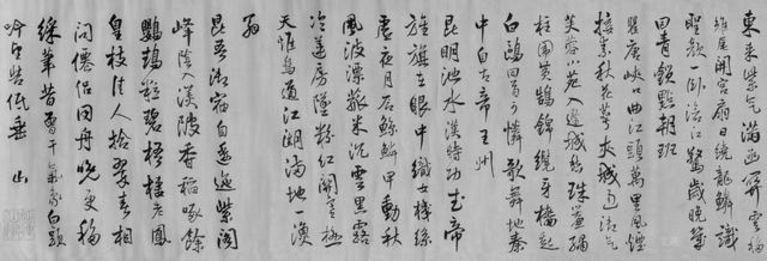 東來紫气滿函關雲移
雉尾開宮扇日繞龍鱗識
聖顏一卧滄江驚歲晚幾
回青鎖點朝班
瞿唐峽口曲江頭萬里風煙
接素秋花萼夾城通御气
芙蓉小苑入邊城愁珠簾繡
柱圍黃鵠錦纜牙檣起
白鷗回首可憐歌舞地秦
中自古帝王州
昆明池水漢時功武帝
旌旗在眼中織女機絲
虛夜月石鯨鱗甲動秋
風波漂菰米沉雲黑露
冷蓮房墜粉紅關塞極
天惟鳥道江湖滿地一漁
翁
昆吾御宿自逶迤紫閣
峰陰入渼陂香稻啄餘
鸚鵡粒碧梧棲老鳳
皇枝佳人拾翠春相
問僊侶同舟晚更移
綵筆昔曾干氣象白頭
吟望苦低垂 山